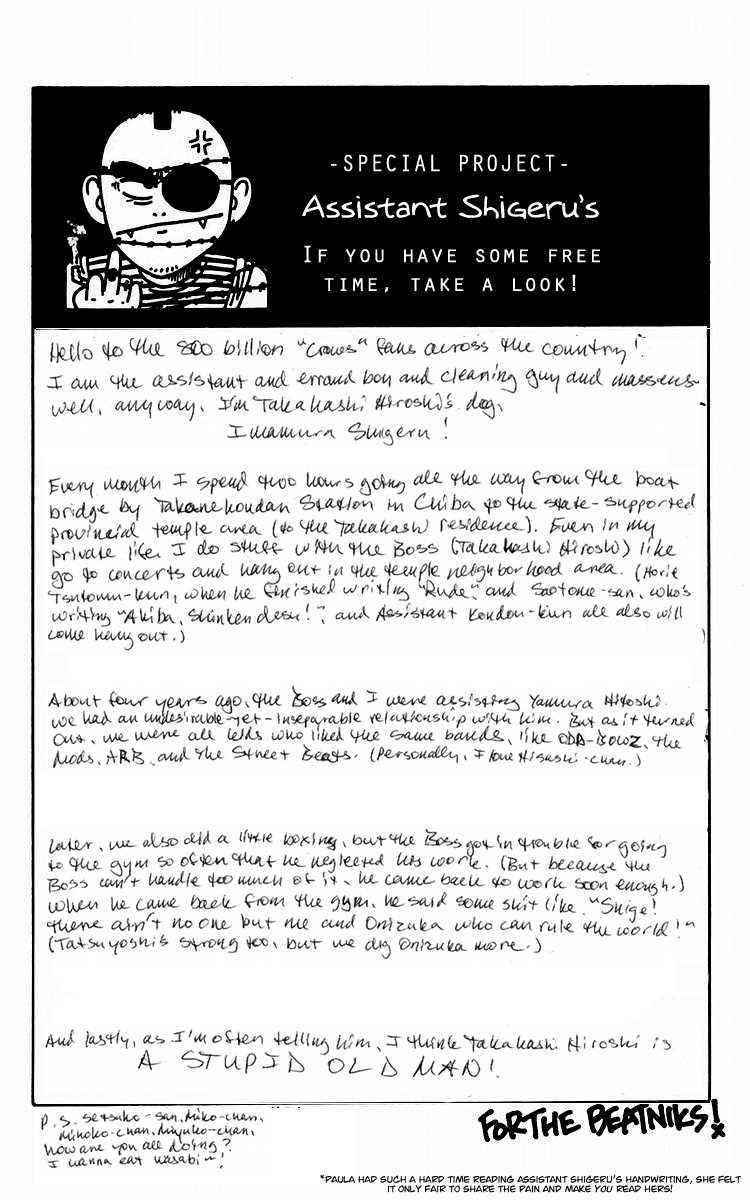 -SPECIAL PROJECT-
Assistant Shigeru's
IF YOU HAVE SOME FREE
TIME, TAKE A LOOK!
Hello to the 800 billion "Crows" fans across the country!
I am the assistant and errand boy and cleaning guy and masseus-
well, anyway, I'm Takahashi Hiroshi's dog,
Imamura Shigeru!
Every month I spend two hours going all the way from the boat
bridge by Takanekoudan Station in Chiba to the state-supported
provincial temple area (to the Takahashi residence). Even in my
private life I do stuff with the Boss (Takahashi Hiroshi) like
go to concerts and hang out in the temple neighborhood area. (Horie
Tsutomu-kun, when he finished writing "Rude," and Saotome-san, who's
writing "Akiba, Shinken desu!", and Assistant Kondou-kun all also will
come hang out.)
About four years ago, the Boss and I were assisting Yamura Hitoshi.
We had an undesirable-yet-inseparable relationship with him. But as it turned
out, we were all kids who liked the same bands, like the
Mods, ARB, and the Street Beats. (Personally, I love Hisashi-chan.)
Later, we also did a little boxing, but the Boss got in trouble for going
to the gym so often that he neglected his work. (But because the
Boss can't handle too much of it, he came back to work soon enough.)
When he came back from the gym, he said some shit like, "Shige!
There ain't no one but me and Onizuka who can rule the world!"
(Tatsuyoshi's strong too, but we dig Onizuka more.)
And lastly, as I'm often telling him, I think Takahashi Hiroshi is
A STUPID OLD MAN!
P.S. Setsuko-san, Miko-chan,
Mihoko-chan, Miyuko-chan,
how are you all doing?
I wanna eat wasabi~!
FOR THE BEATNIKS!
*PAULA HAD SUCH A HARD TIME READING ASSISTANT SHIGERU'S HANDWRITING, SHE FELT
IT ONLY FAIR TO SHARE THE PAIN AND MAKE YOU READ HERS!